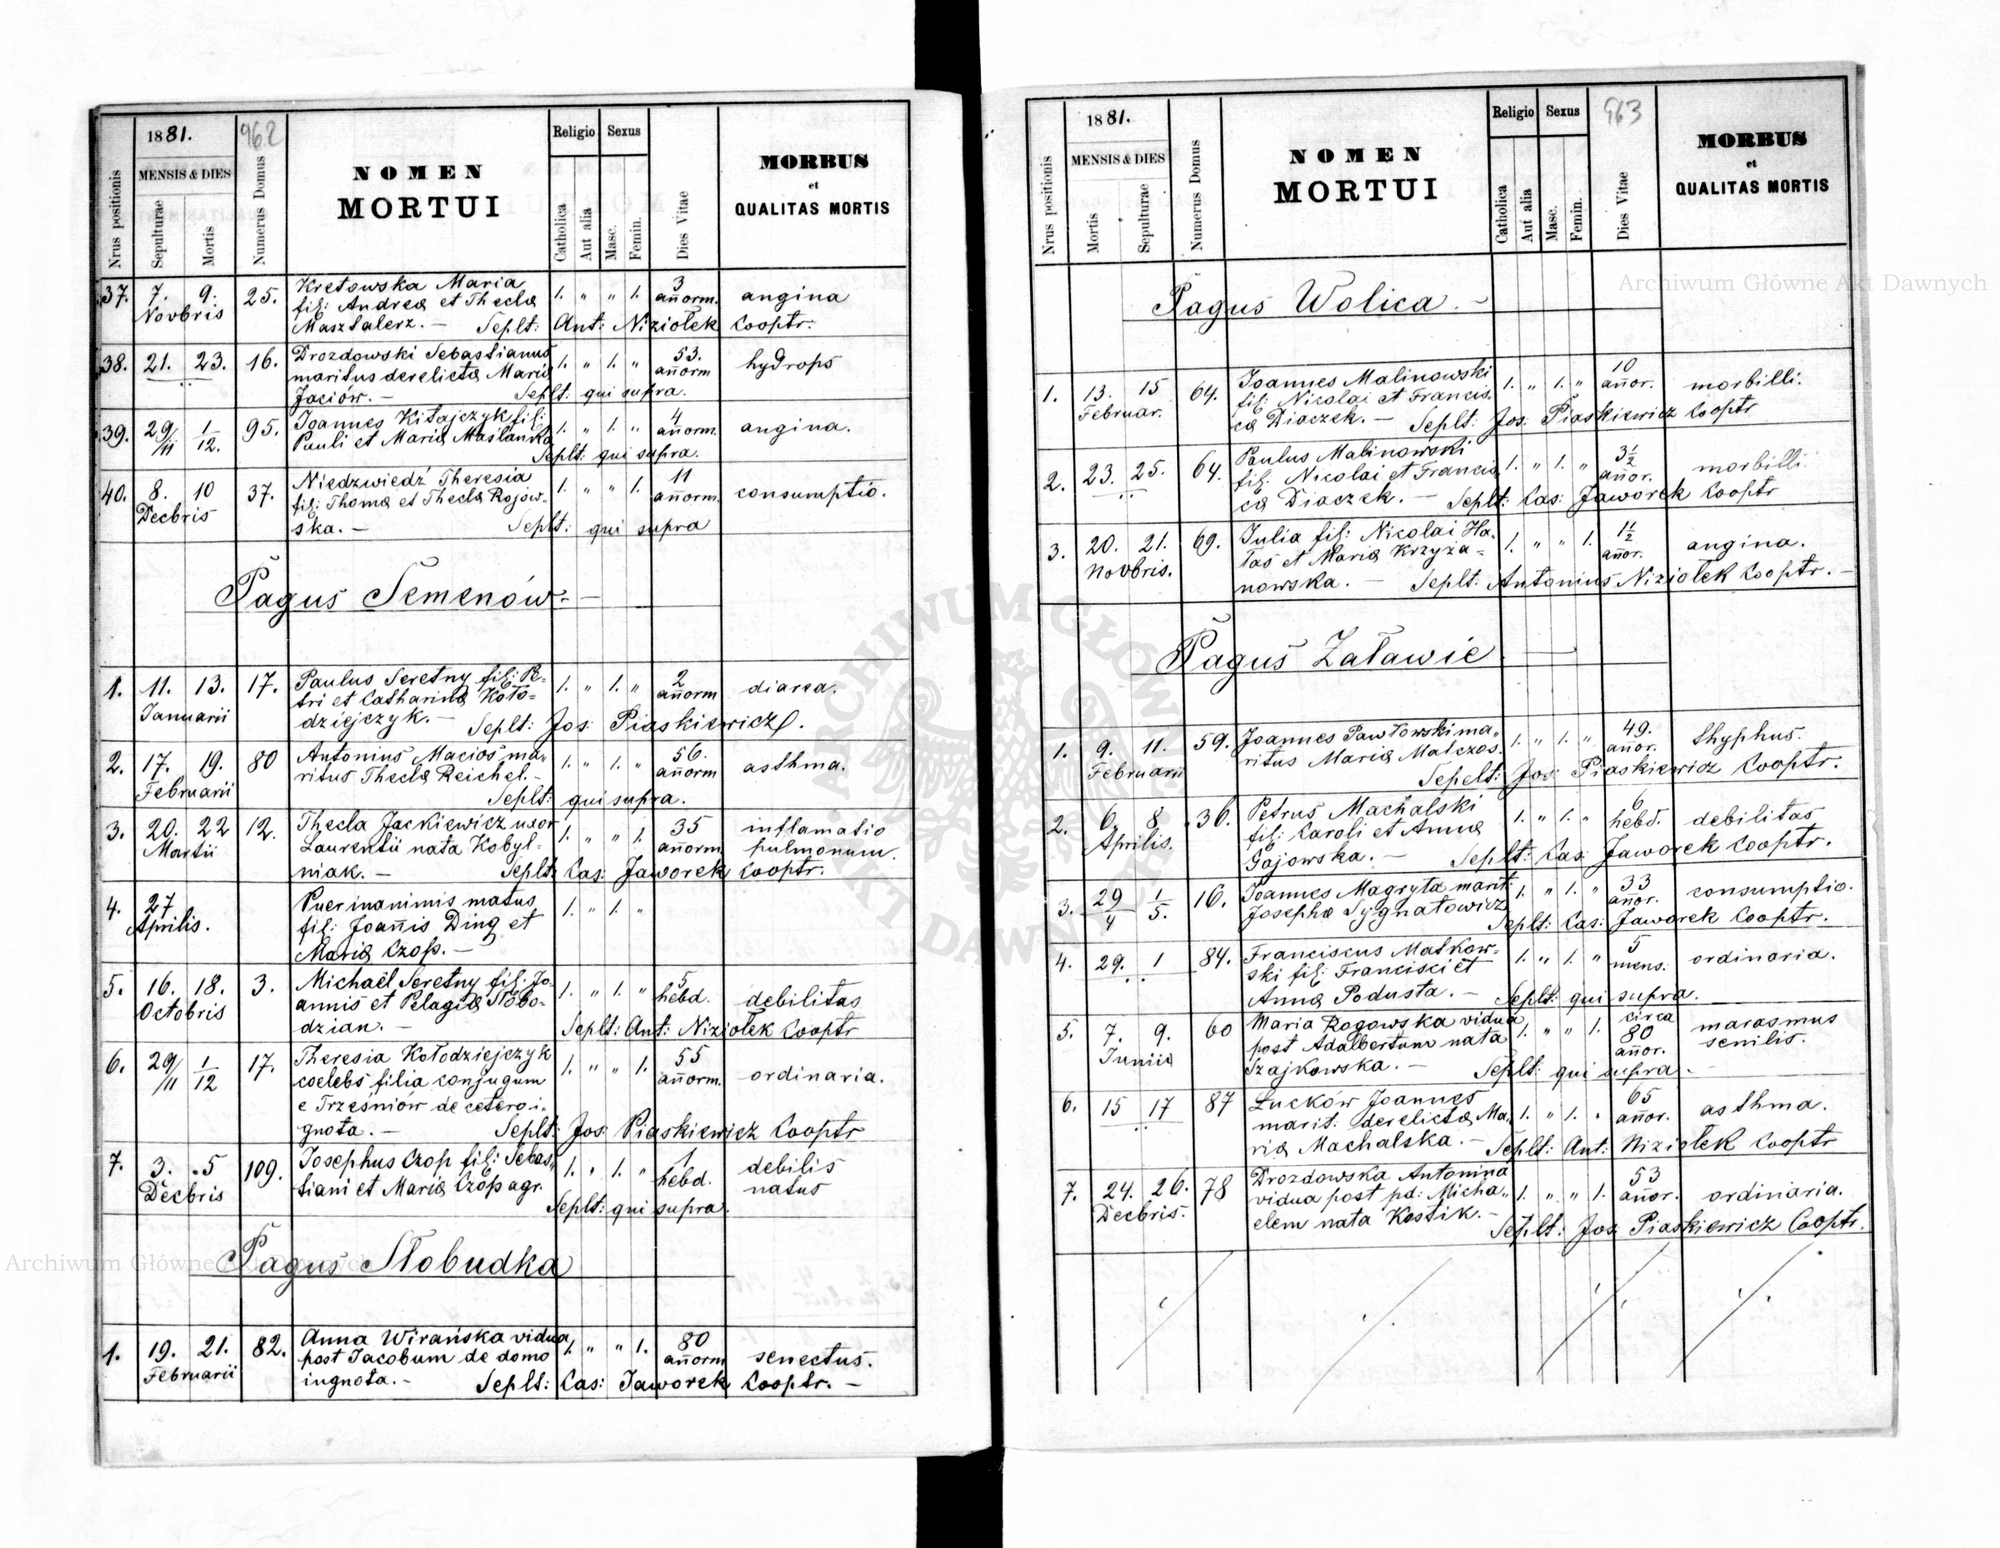 1881.
962
Nrus positionis
MENSIS & DIES
Sepulturae
Mortis
Numerus Domus
NOMEN
MORTUI
Religio
Sexus
Catholica
Aut alia
Masc.
Femin.
Dies Vitae
MORBUS
et
QUALITAS MORTIS
37. 7. 9. 25. Kretowska Maria 1. " " 1. 3
Novbris fil: Andreæ et Theclæ añorm. angina
Masztalerz. — Seplt: Ant: Niziołek Cooptr.
38. 21. 23. 16. Drozdowski Sebastianus 1. " 1. " 53. hydrops
maritus derelictæ Mariæ añorm
Jaciow. — Seplt: qui supra.
39. 29/11 1/12. 95. Joannes Kitajczyk fil: 1. " 1. " 4
Pauli et Mariæ Maślanka añorm. angina.
Seplt: qui supra.
40. 8. 10 37. Niedzwiedź Theresia 1. " " 1. 11
Decbris fil: Thomæ et Theclæ Rojow- añorm. consumptio.
ska. — Seplt: qui supra
Pagus Semenów. —
1. 11. 13. 17. Paulus Seretny fil: Pe- 1. " 1. " 2
Januarii tri et Catharinæ Koło- añorm diarea.
dziejczyk. — Seplt: Jos: Piaskiewicz
2. 17. 19. 80 Antonius Macios ma- 1. " 1. " 56.
Februarii ritus Theclæ Reichel. — añorm asthma.
Seplt: qui supra.
3. 20. 22 12. Thecla Jackiewicz uxor 1. " " 1. 35 inflamatio
Martii Laurentii nata Kobyl- añorm. pulmonum.
niak. — Seplt: Cas: Jaworek Cooptr.
4. 27 Puer inanimis matus 1. " 1. "
Aprilis. fil: Joañis Ding et
Mariæ Czop. —
5. 16. 18. 3. Michaël Seretny fil: Jo- 1. " 1. " 5
Octobris annis et Pelagiæ Słobo- hebd. debilitas
dzian. — Seplt: Ant: Niziołek Cooptr
6. 29/11 1/12 17. Theresia Kołodziejczyk 1. " " 1. 55
coelebs filia conjugum añorm. ordinaria.
e Trześniów de cetero i-
gnota. — Seplt: Jos: Piaskiewicz Cooptr
7. 3. 5 109. Josephus Czop fil: Sebas- 1. " 1. " 1 debilis
Decbris tiani et Mariæ Czop agr. hebd. natus
Seplt: qui supra.
Pagus Słobudka
1. 19. 21. 82. Anna Wirańska vidua 1. " " 1. 80
Februarii post Jacobum de domo añorm senectus.
ingnota. — Seplt: Cas: Jaworek Cooptr. —
1881.
963
Nrus positionis
MENSIS & DIES
Mortis
Sepulturae
Numerus Domus
NOMEN
MORTUI
Religio
Sexus
Catholica
Aut alia
Masc.
Femin.
Dies Vitae
MORBUS
et
QUALITAS MORTIS
Pagus Wolica. —
1. 13. 15 64. Joannes Malinowski 1. " 1. " 10
Februar. fil: Nicolai et Francis- añor. morbilli.
cæ Diaczek. — Seplt: Jos: Piaskiewicz Cooptr
2. 23. 25. 64. Paulus Malinowski 1. " 1. " 3½
fil: Nicolai et Francis- añor. morbilli.
cæ Diaczek. — Seplt: Cas: Jaworek Cooptr
3. 20. 21. 69. Julia fil: Nicolai Ha- 1. " " 1. 1½
Novbris. łas et Mariæ Krzyza- añor. angina.
nowska. — Seplt: Antonius Niziołek Cooptr. —
Pagus Załawie. —
1. 9. 11. 59. Joannes Pawłowski ma- 1. " 1. " 49.
Februarii ritus Mariæ Malczos. añor. thyphus.
Sepelt: Jos: Piaskiewicz Cooptr.
2. 6. 8. 36. Petrus Machalski 1. " 1. " 6
Aprilis. fil: Caroli et Annæ hebd. debilitas
Gajowska. — Seplt: Cas: Jaworek Cooptr.
3. 29/4 1/5. 16. Joannes Magryta marit: 1. " 1. " 33
Josephæ Sygnatowicz añor. consumptio.
Seplt: Cas: Jaworek Cooptr.
4. 29. 1 84. Franciscus Malkow- 1. " 1. " 5
ski fil: Francisci et mens: ordinaria.
Annæ Podusta. — Seplt: qui supra.
5. 7. 9. 60 Maria Rogowska vidua 1. " " 1. circa 80 marasmus
Juniiæ post Adalbertum nata añor. senilis.
Szajkowska. — Seplt: qui supra. —
6. 15 17 87 Łucków Joannes 1. " 1. " 65
marit: derelictæ Ma- añor. asthma.
riæ Machalska. — Seplt: Ant: Niziołek Cooptr
7. 24. 26. 78 Drozdowska Antonina 1. " " 1. 53
Decbris. vidua post pd: Micha- añor. ordinaria.
elem nata Kostik. —
Seplt: Jos: Piaskiewicz Cooptr.
Archiwum Główne Akt Dawnych
Archiwum Główne Akt Dawnych
ARCHIWUM GŁÓWNE AKT DAWNYCH